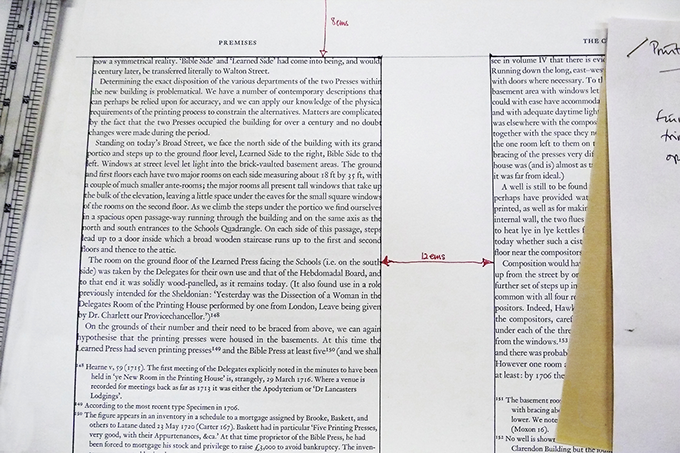 8 ems
PREMISES
now a symmetrical reality. 'Bible Side' and 'Learned Side' had come into being, and would,
a century later, be transferred literally to Walton Street.
Determining the exact disposition of the various departments of the two Presses within
the new building is problematical. We have a number of contemporary descriptions that
can perhaps be relied upon for accuracy, and we can apply our knowledge of the physical
requirements of the printing process to constrain the alternatives. Matters are complicated
by the fact that the two Presses occupied the building for over a century and no doubt
changes were made during the period.
Standing on today's Broad Street, we face the north side of the building with its grand
portico and steps up to the ground floor level, Learned Side to the right, Bible Side to the
left. Windows at street level let light into the brick-vaulted basement areas. The ground
and first floors each have two major rooms on each side measuring about 18 ft by 35 ft, with
a couple of much smaller ante-rooms; the major rooms all present tall windows that take up
the bulk of the elevation, leaving a little space under the eaves for the small square windows
of the rooms on the second floor. As we climb the steps under the portico we find ourselves
in a spacious open passage-way running through the building and on the same axis as the
north and south entrances to the Schools Quadrangle. On each side of this passage, steps
lead up to a door inside which a broad wooden staircase runs up to the first and second
floors and thence to the attic.
The room on the ground floor of the Learned Press facing the Schools (i.e. on the south
side) was taken by the Delegates for their own use and that of the Hebdomadal Board, and
to that end it was solidly wood-panelled, as it remains today. (It also found use in a role
previously intended for the Sheldonian: 'Yesterday was the Dissection of a Woman in the
Delegates Room of the Printing House performed by one from London, Leave being given
by Dr. Charlett our Provicechancellor.')148
On the grounds of their number and their need to be braced from above, we can again
hypothesise that the printing presses were housed in the basements. At this time the
Learned Press had seven printing presses149 and the Bible Press at least five150 (and we shall
148 Hearne v, 59 (1715). The first meeting of the Delegates explicitly noted in the minutes to have been
held in 'ye New Room in the Printing House' is, strangely, 29 March 1716. Where a venue is
recorded for meetings back as far as 1713 it was either the Apodyterium or 'Dr Lancasters
Lodgings'.
149 According to the most recent type Specimen in 1706.
150 The figure appears in an inventory in a schedule to a mortgage assigned by Brooke, Baskett, and
others to Latane dated 23 May 1720 (Carter 167). Baskett had in particular 'Five Printing Presses,
very good, with their Appurtenances, &ca.' At that time proprietor of the Bible Press, he had
been forced to mortgage his stock and privilege to raise £3,000 to avoid bankruptcy. The inven-
12 ems
THE
see in volume IV that there is
Running down the long,
with doors where necessary. To
basement area with windows let
could with ease have
and with adequate daytime
was elsewhere with the
together with the space they
the one room left to them on
bracing of the presses very
house was (and is) almost as
it was far from ideal.)
A well is still to be found
perhaps have provided
printed, as well as for
internal wall, the two flues
to heat lye in lye kettles
today whether such a
floor near the compositors
Composition would
up from the street by
further set of steps up
common with all four
positors. Indeed,
the compositors,
under each of the
from the windows.153
and there was
However one room
at least: by 1706 the
151 The basement
with bracing
lower. We note
(Moxon 16).
152 No well is shown
Clarendon Building but the